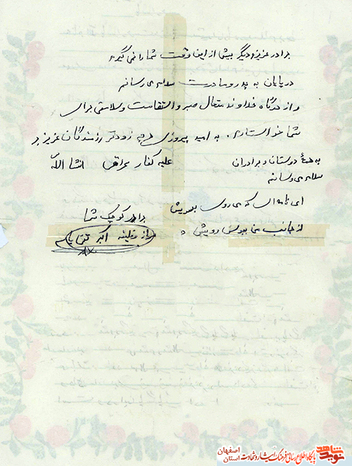 برادر عزیز دیگر بیش از این وقت شما را نمی گیرم
در پایان به پدر و مادرت سلام می رسانم
و از درگاه خداوند متعال صبر و استقامت و سلامتی برای
شما خواستارم. به امید پیروزی هرچه زودتر رزمندگان عزیز بر
علیه کفار عراقی انشا الله
به همۀ دوستان و برادران
سلام می رسانم
ای نامه ای که می روی بسویش
از جانب من ببوس رویش.
برادر کوچک شما
اکبر
نوید شاهد
پایگاه اطلاع رسانی فرهنگ ایثار و شهادت
استان اصفهان